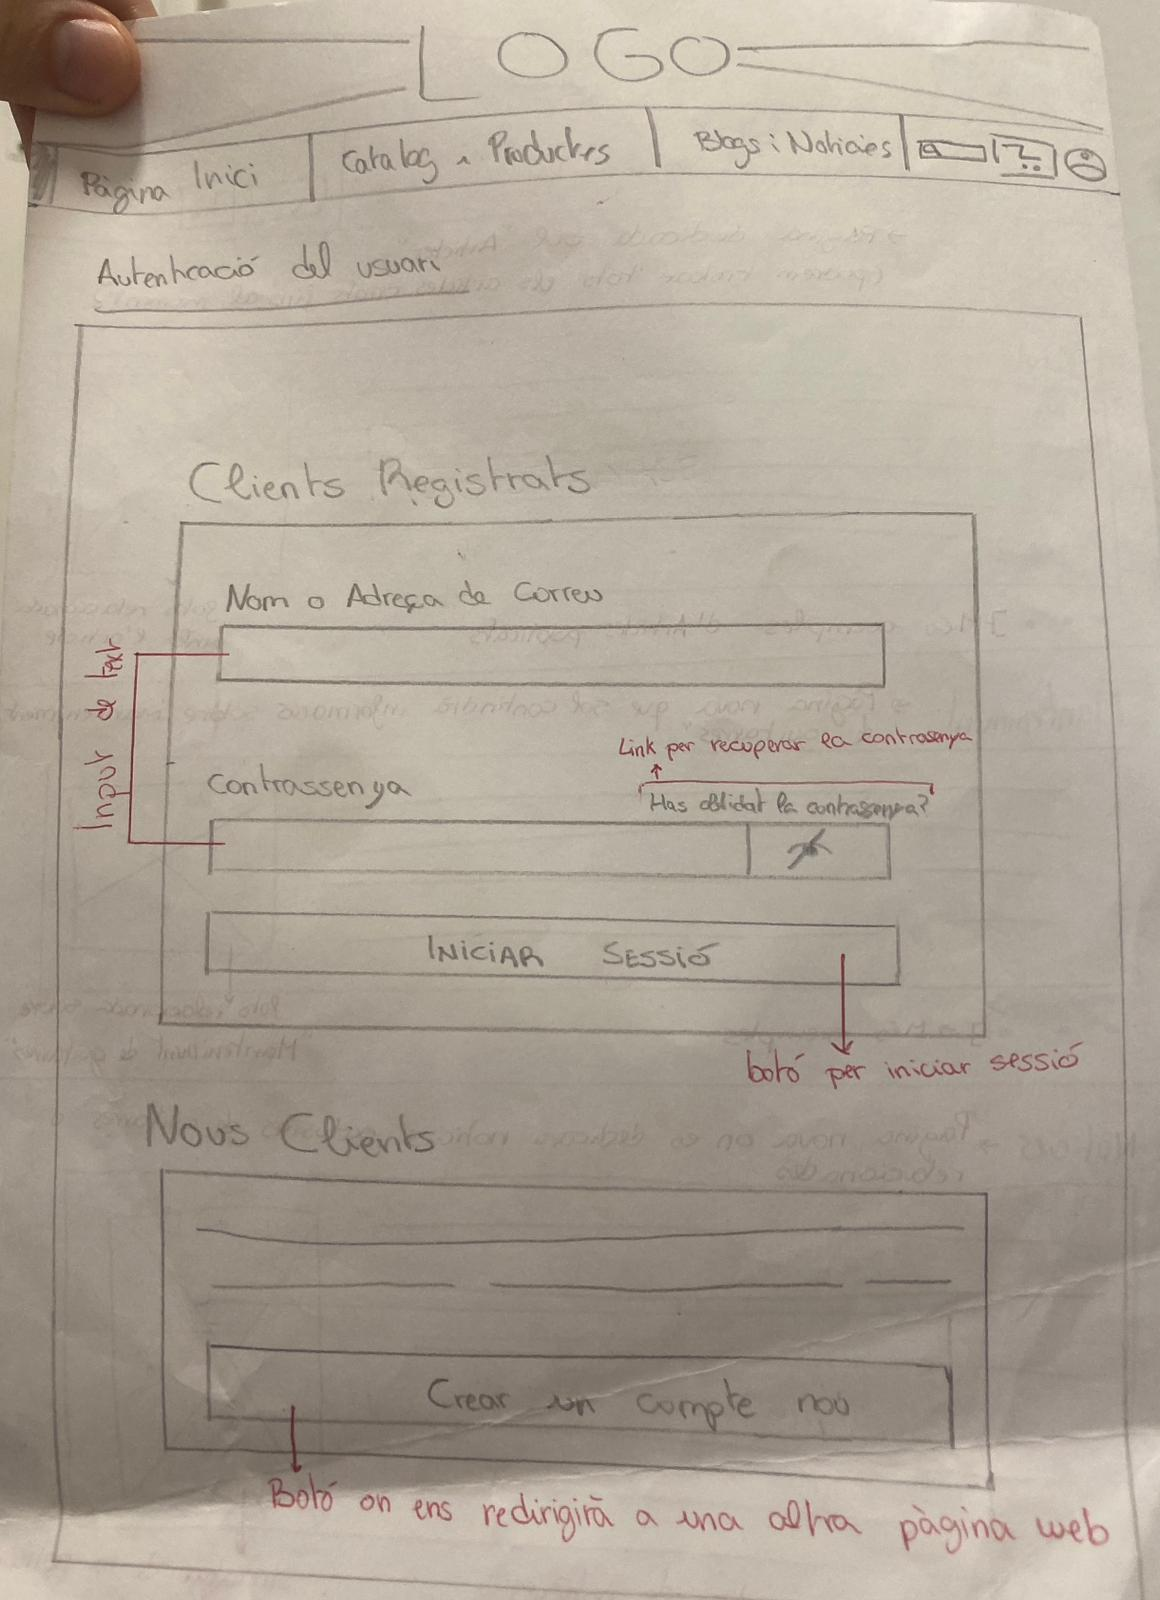 LOGO
Pàgina Inici
Catalog Productes
Blogs i Noticies
Autenticació del usuari
Clients Registrats
Nom o Adreça de Correu
Input de text
Link per recuperar la contrasenya
Contrassenya
Has oblidat la contrasenya?
INICIAR SESSIÓ
botó per iniciar sessió
Nous Clients
Crear un compte nou
Botó on ens redirigirà a una altra pàgina web